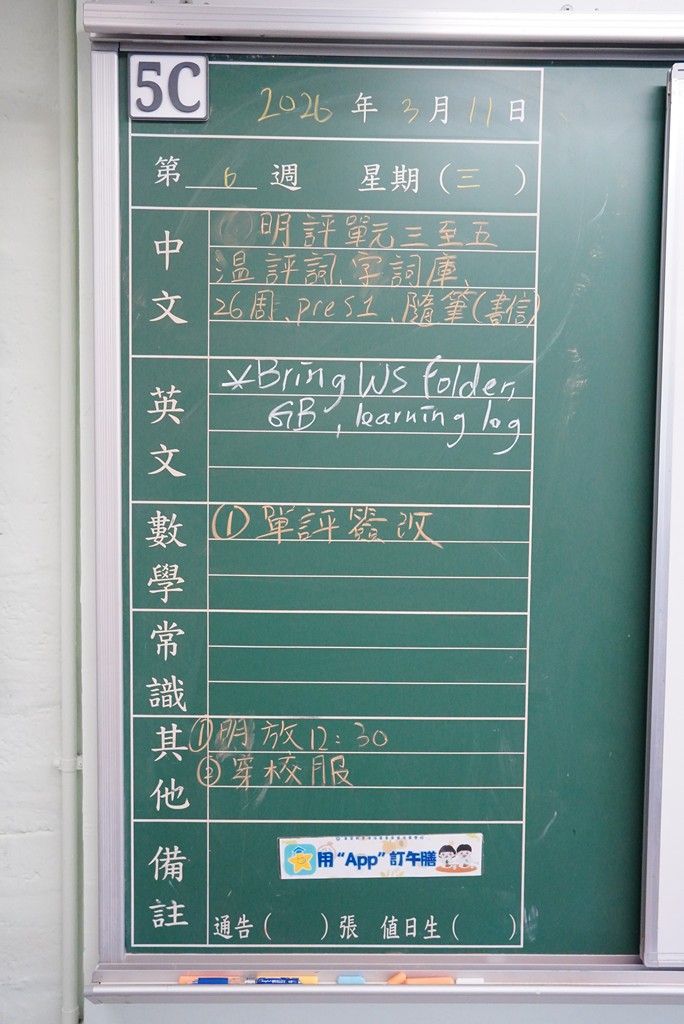 5C
2026年3月11日
第6週 星期(三)
中文
明評單元三至五
溫評詞、字詞庫、
26周、pres1、隨筆(書信)
英文
*Bring WS folder,
GB, learning log
數學
① 單評簽改
常識
其他
①明放12:30
②穿校服
備註
用“App”訂午膳
通告( )張 值日生( )